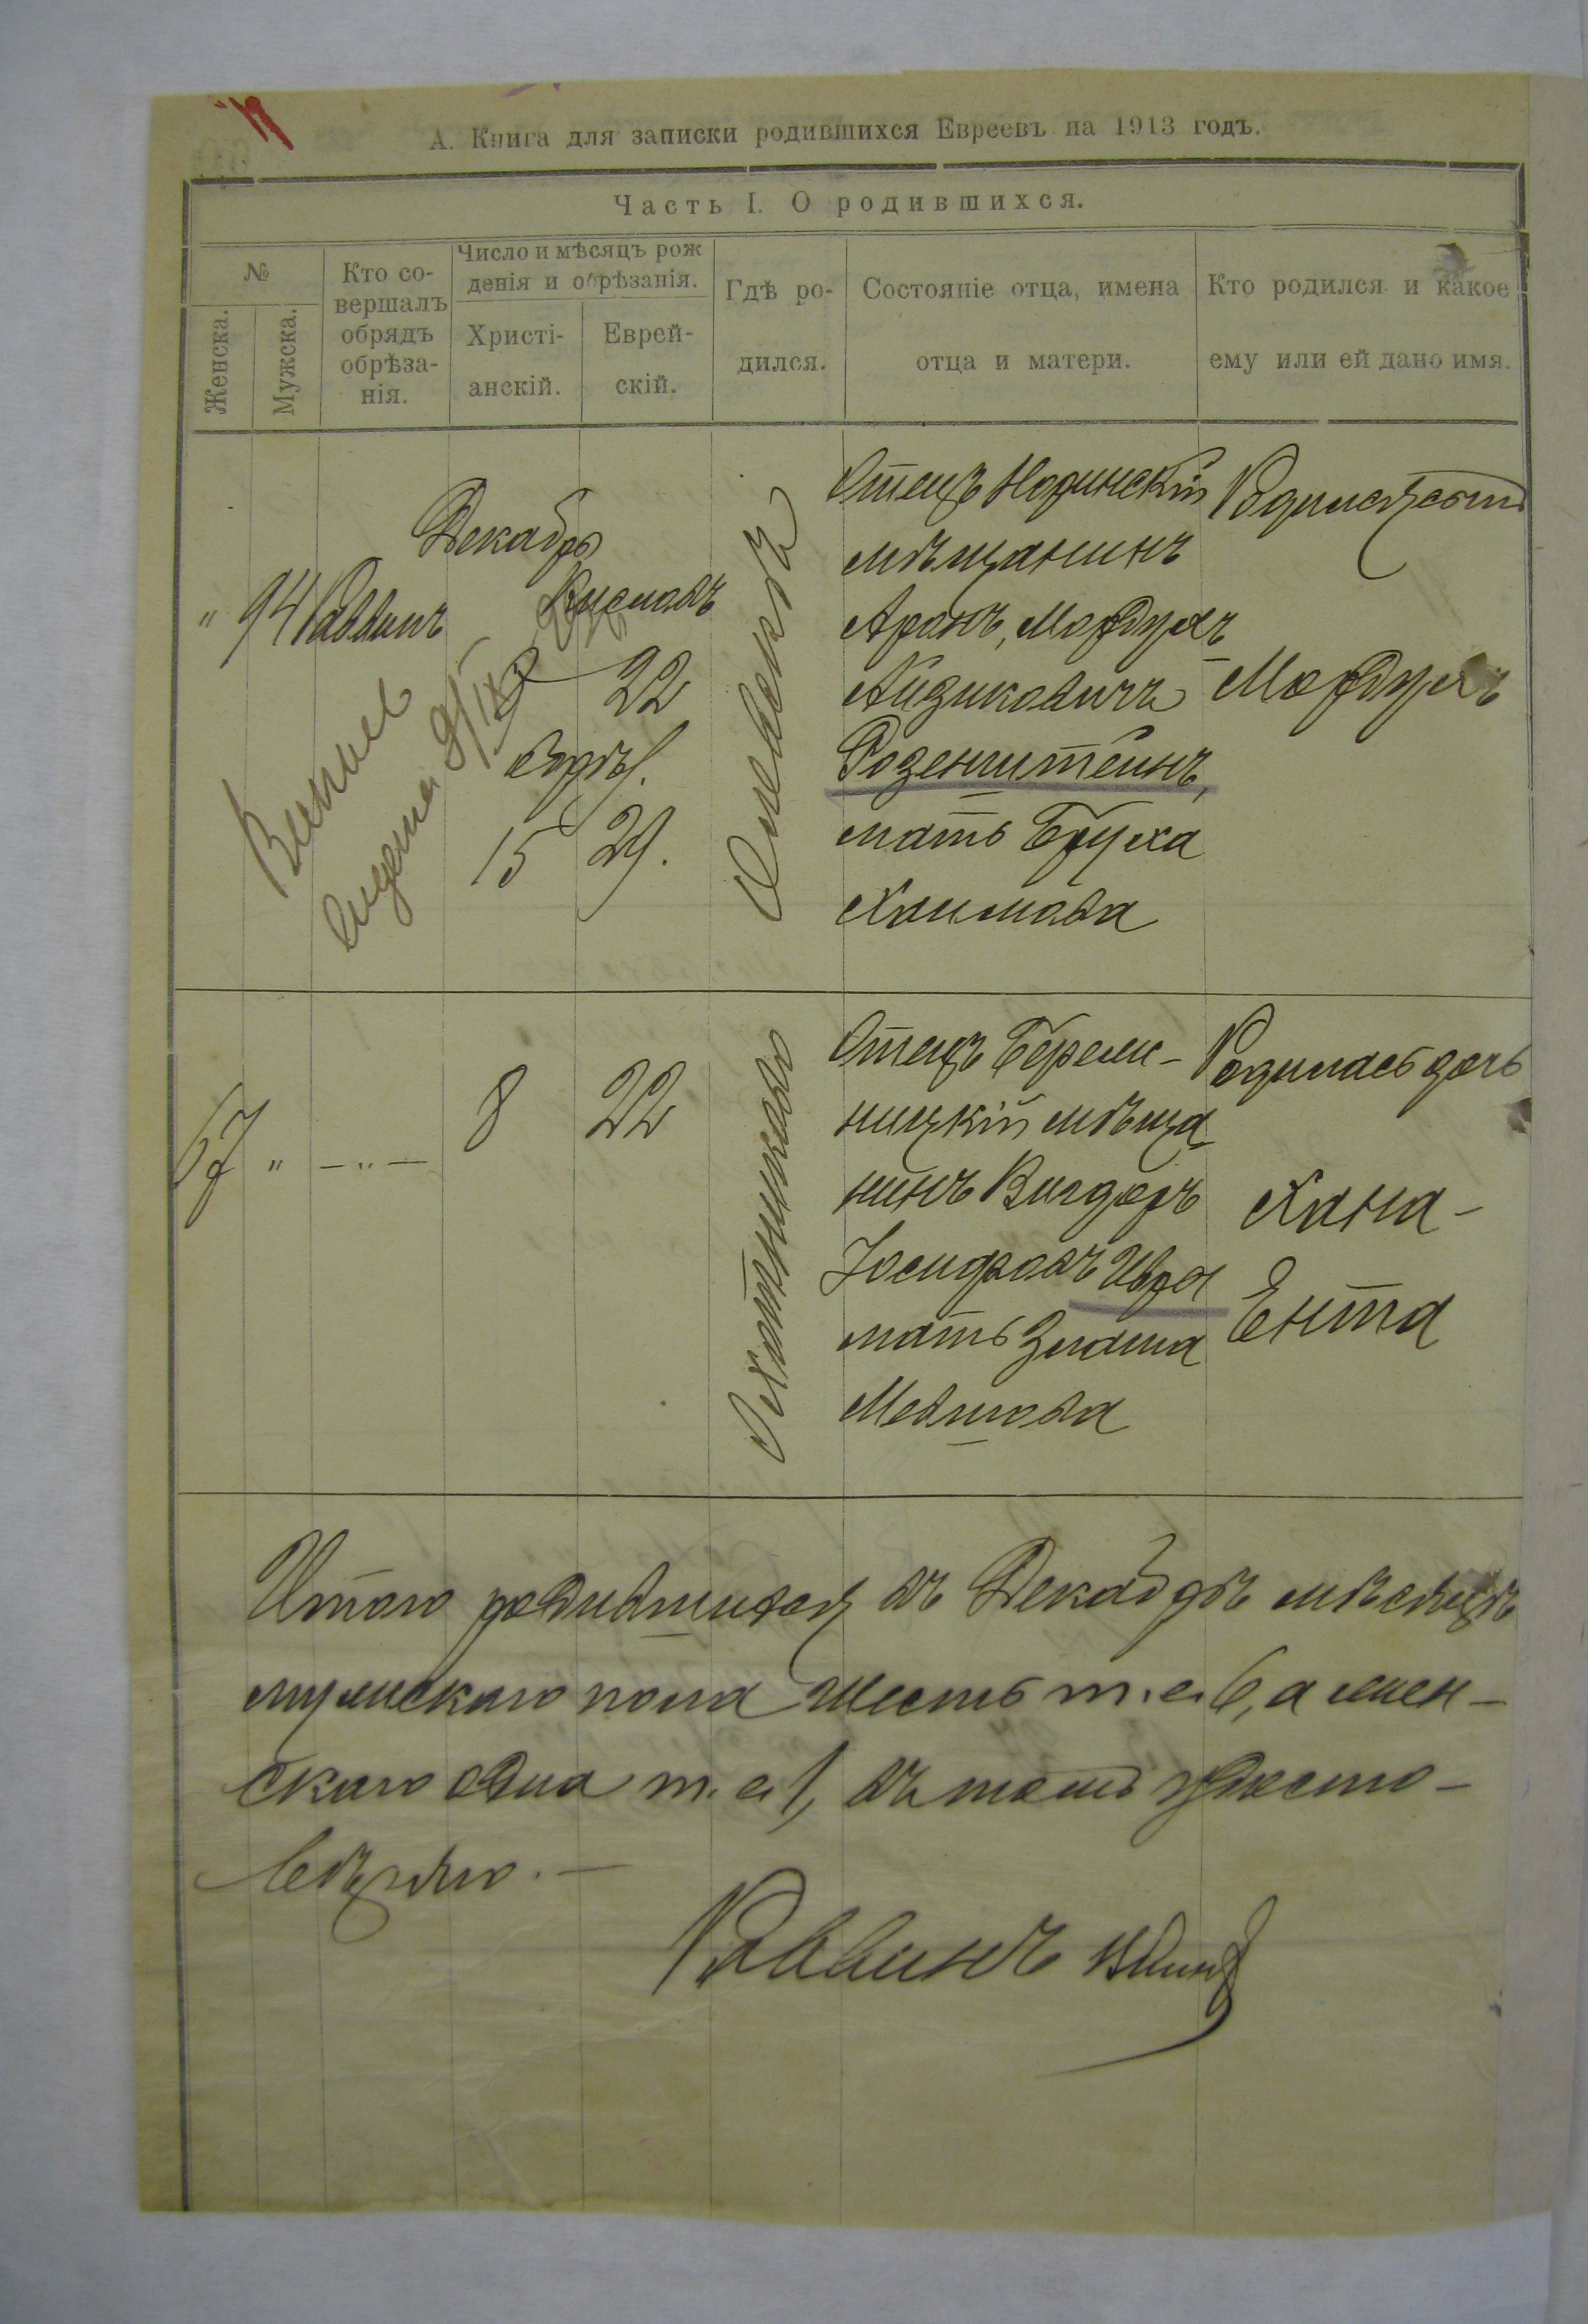 А. Книга для записки родившихся Евреевъ на 1913 годъ.
Часть I. О родившихся.
№
Женска.
Мужска.
Кто со-
вершалъ
обрядъ
обрѣза-
нія.
Число и мѣсяцъ рож
денія и обрѣзанія.
Христі-
анскій.
Еврей-
скій.
Гдѣ ро-
дился.
Состояніе отца, имена
отца и матери.
Кто родился и какое
ему или ей дано имя.
" 94 Раввинъ
Декабрь
Кислевъ
8 22
15 29.
Олевскъ
Отецъ
мѣщанинъ
Аронъ, Мордухъ
Айзиковичъ
Розенштейнъ,
мать Бруха
Хаимова
Родился сынъ
Мордухъ
Выпись
выдана
67 " — " — 8 22
Отецъ Берез-
ницкій мѣща-
нинъ Вигдоръ
Іосифовъ
мать Злата
Родилась дочь
Хана-
Ента
Итого родившихся въ Декабрѣ мѣсяцѣ
мужскаго пола шесть т. е. 6, а жен-
скаго одна т. е. 1, въ томъ удосто-
вѣряю. —
Раввинъ